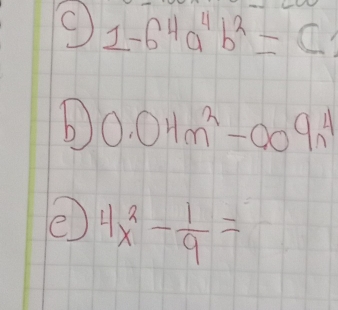 c) 1-64a⁴b² = C
b) 0.04m² - 009n⁴
e) 4x² - 1/9 =